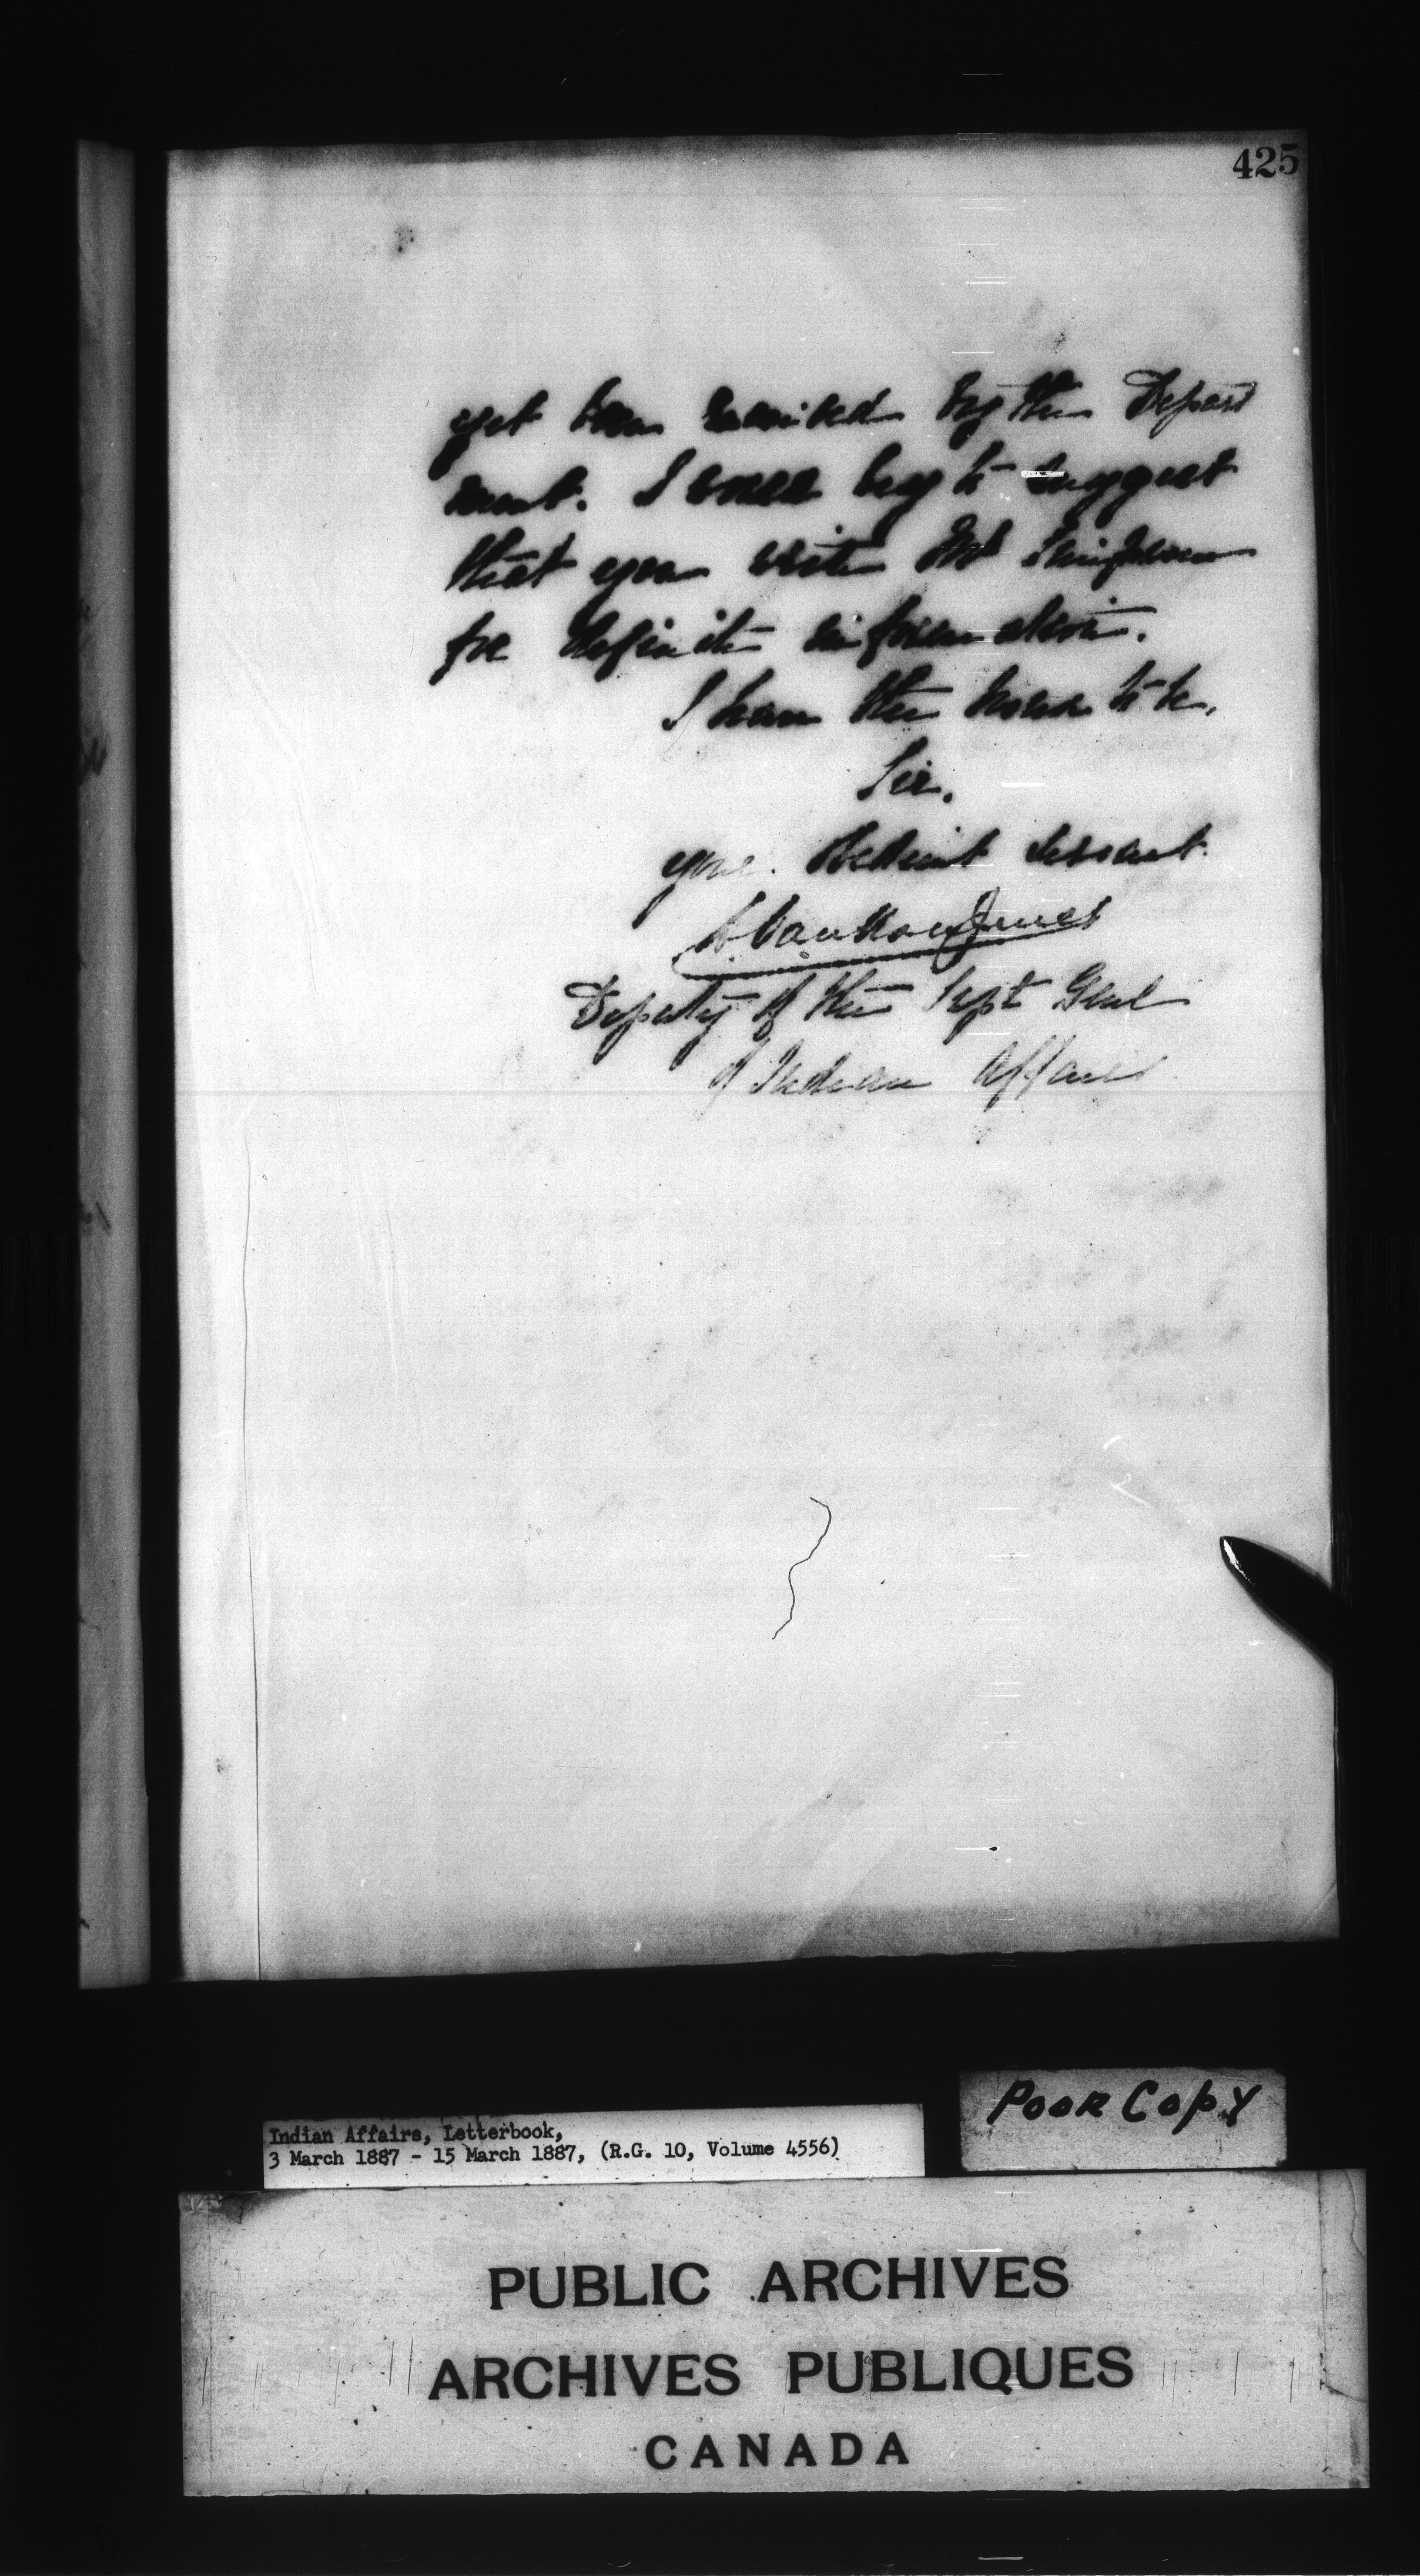 425
yet been received by the Depart
ment. I would beg to suggest
that you write Mr Simpson
for definite information.
I have the honor to be,
Sir,
your Obedient servant.
L. VanKoughnet
Deputy of the Supt Genl
of Indian Affairs
Indian Affairs, Letterbook,
3 March 1887 - 15 March 1887, (R.G. 10, Volume 4556)
Poor Copy
PUBLIC ARCHIVES
ARCHIVES PUBLIQUES
CANADA